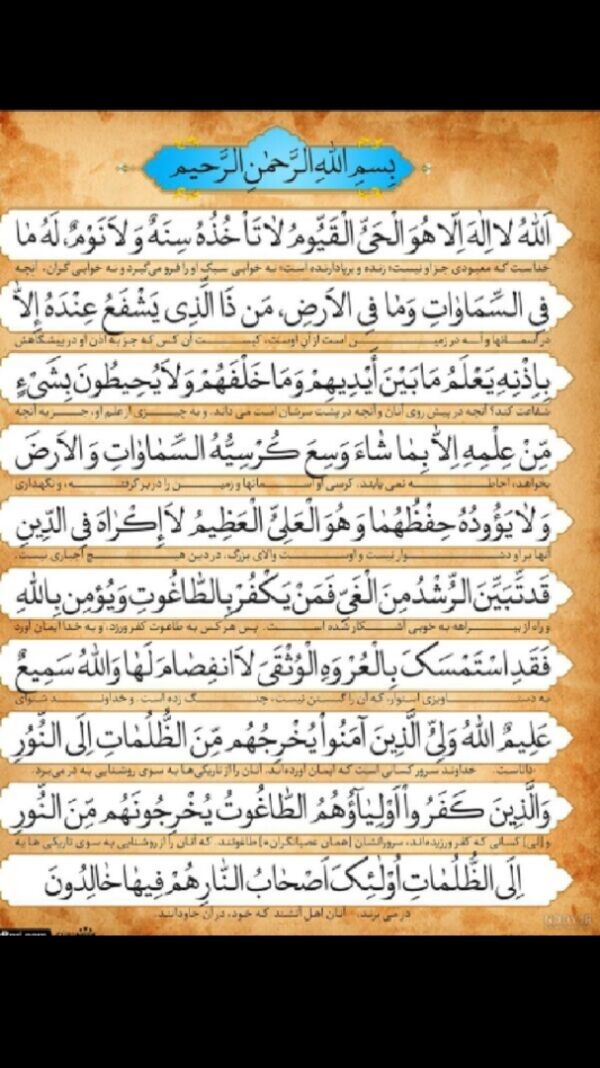 بِسْمِ اللهِ الرَّحمٰنِ الرَّحیمِ
اَللهُ لا اِلٰهَ اِلّا هُوَ الْحَیُّ الْقَیُّومُ لاٰ تَأخُذُهُ سِنَةٌ وَ لاٰ نَوْمٌ، لَهُ مٰا
خداست که معبودی جز او نیست؛ زنده و برپادارنده است؛ نه خوابی سبک او را فرو می‌گیرد و نه خوابی گران، آنچه
فِی السَّمٰاوٰاتِ وَمٰا فِی الاَرضِ، مَن ذَا الَّذِی یَشْفَعُ عِنْدَهُ إِلاّٰ
در آسمانها و آنچه در زمین است از آن اوست، کیست آن کس که جز به اذن او در پیشگاهش
بِاِذْنِهِ یَعْلَمُ مٰا بَیْنَ أَیْدِیهِمْ وَ مٰا خَلْفَهُمْ وَ لاٰ یُحِیطُونَ بِشَیْءٍ
شفاعت کند؟ آنچه در پیش روی آنان و آنچه در پشت سرشان است می داند. و به چیزی از علم او، جز به آنچه
مِّنْ عِلْمِهِ اِلاّٰ بِمٰا شٰاءَ وَسِعَ کُرْسِیُّهُ السَّمٰاوٰاتِ وَ الاَرضَ
بخواهد، احاطه نمی یابند. کرسی او آسمانها و زمین را در بر گرفته، و نگهداری
وَ لاٰ یَؤُودُهُ حِفْظُهُمٰا وَ هُوَ الْعَلِیُّ الْعَظِیمُ لاٰ إِکْرٰاهَ فِی الدِّینِ
آنها بر او دشوار نیست و اوست والای بزرگ. در دین هیچ اجباری نیست.
قَدتَّبَیَّنَ الرُّشْدُ مِنَ الْغَیِّ فَمَنْ یَکْفُرْ بِالطّٰاغُوتِ وَیُؤْمِن بِاللهِ
و راه از بیراهه به خوبی آشکار شده است. پس هر کس به طاغوت کفر ورزد، و به خدا ایمان آورد
فَقَدِ اسْتَمْسَکَ بِالْعُرْوَهِ الْوُثْقَیَ لاَ انفِصٰامَ لَهٰا وَاللهُ سَمِیعٌ
به دستاویزی استوار، که آن را گسستن نیست، چنگ زده است. و خداوند شنوای
عَلِیمٌ اللهُ وَلِیُّ الَّذِینَ آمَنُواْ یُخْرِجُهُم مِّنَ الظُّلُمٰاتِ اِلَی النُّوُرِ
داناست. خداوند سرور کسانی است که ایمان آورده‌اند. آنان را از تاریکی‌ها به سوی روشنایی به در می‌برد.
وَالَّذِینَ کَفَرُواْ أَوْلِیٰاؤُهُمُ الطّٰاغُوتُ یُخْرِجُونَهُم مِّنَ النُّورِ
و[لی] کسانی که کفر ورزیده‌اند، سرورانشان [همان عصیانگران=] طاغوتند، که آنان را از روشنایی به سوی تاریکی ها به
اِلَی الظُّلُمٰاتِ اُوْلٰئِکَ أَصْحٰابُ النّٰارِ هُمْ فِیهٰا خٰالِدُونَ
در می برند. آنان اهل آتشند که خود، در آن جاودانند.